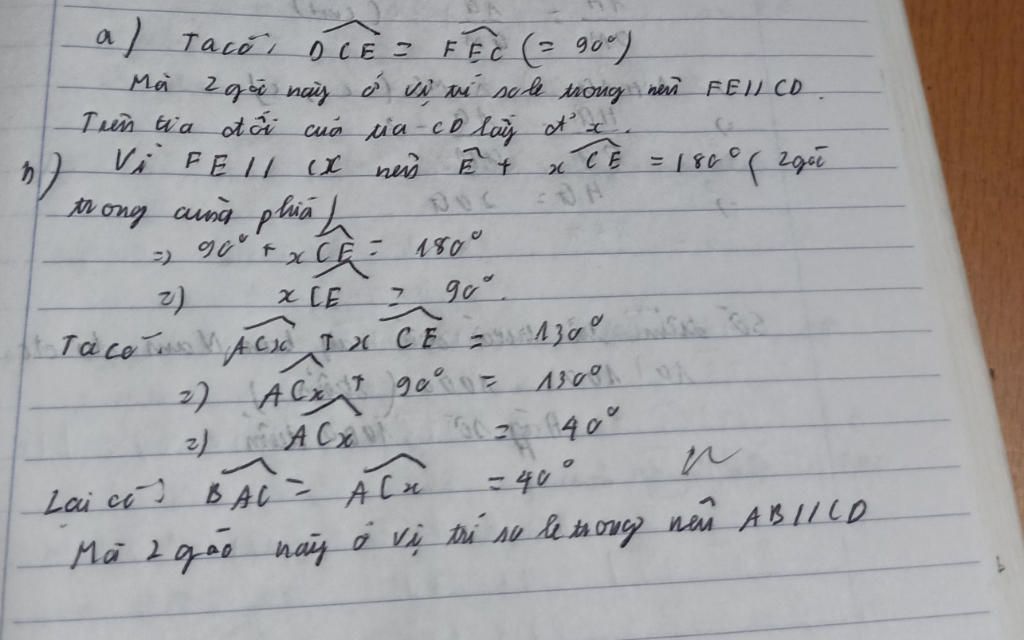 a) Ta có: DCE = FEC (= 90°)
Mà 2 góc này ở vị trí so le trong nên FE // CD.
Trên tia đối của tia CD lấy đ' x.
b) Vì FE // Cx nên E + xCE = 180° ( 2 góc
trong cùng phía)
=> 90° + xCE = 180°
=> xCE = 90°.
Ta có ACx + xCE = 130°
=> ACx + 90° = 130°
=> ACx = 40°
Lại có: BAC = ACx = 40°
Mà 2 góc này ở vị trí so le trong nên AB // CD